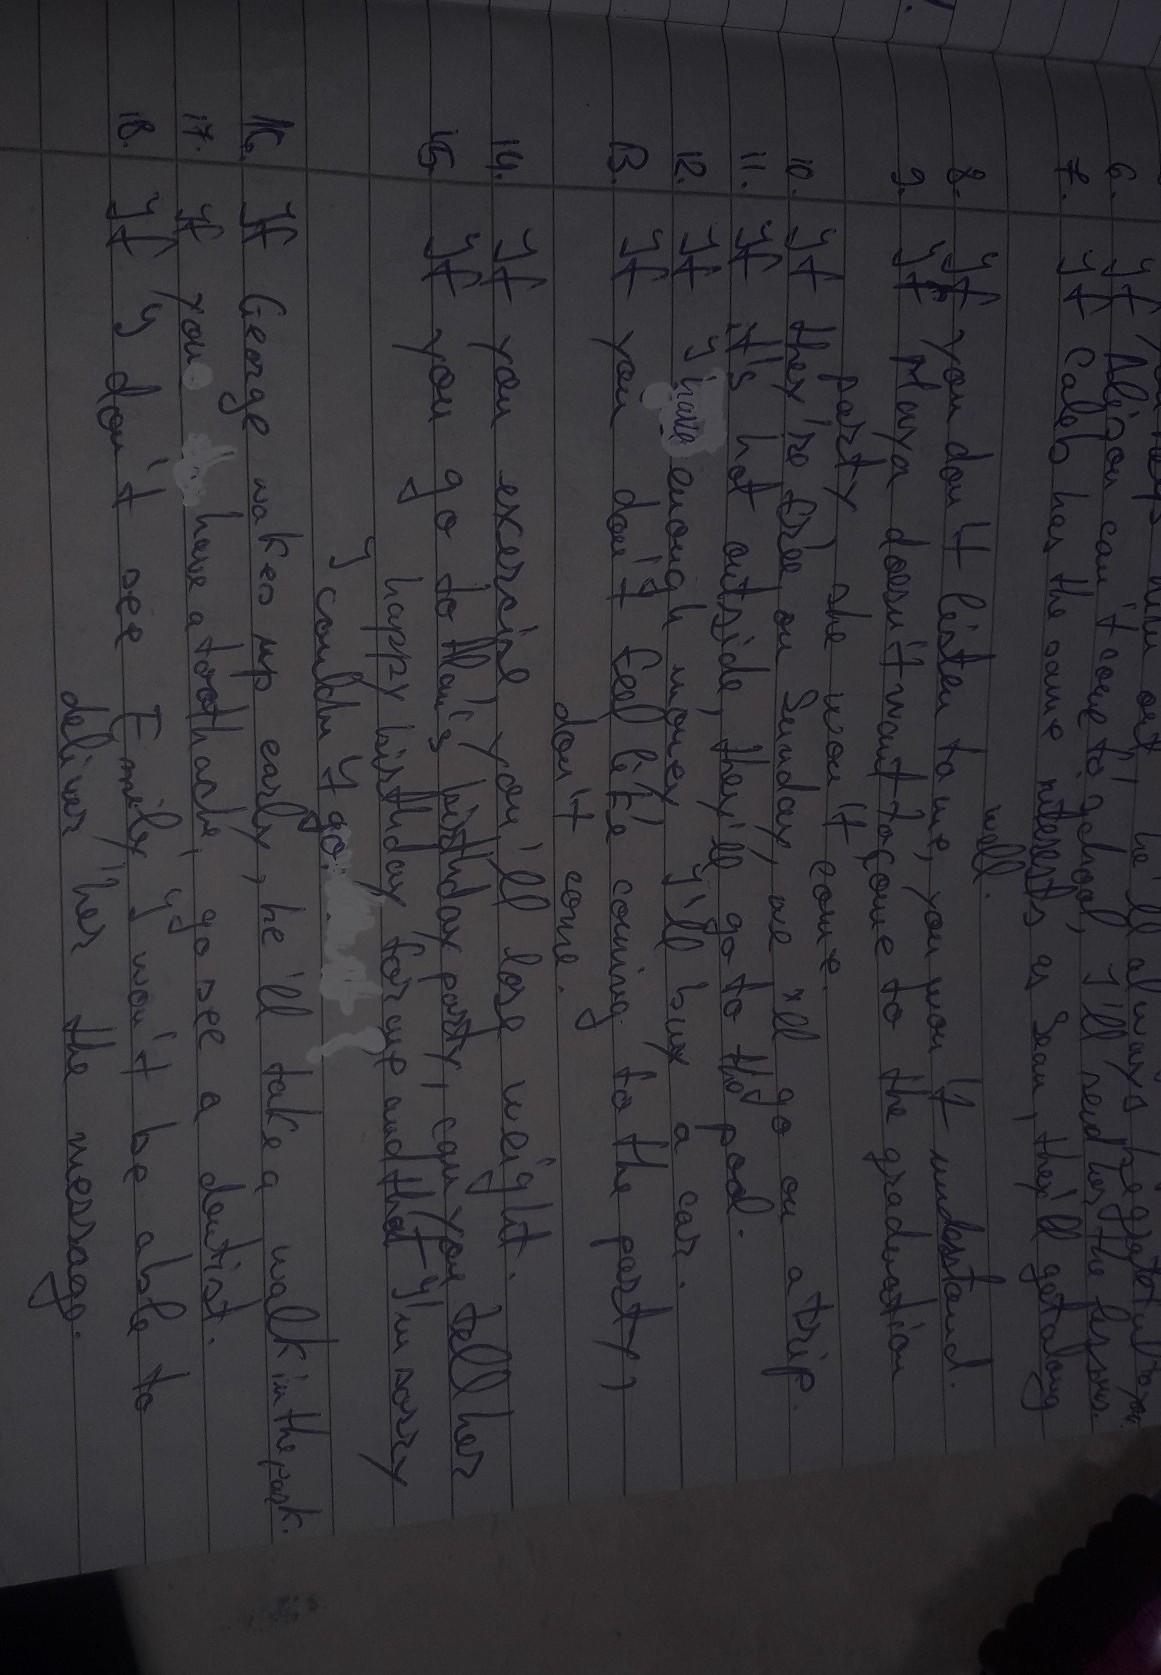 out, he'll always be grateful to you.
6. If Alison can't come to school, I'll send her the lessons.
7. If Caleb has the same interests as Sean, they'll get along
well.
8. If you don't listen to me, you won't understand.
9. If Maya doesn't want to come to the graduation
party she won't come.
10. If they're free on Sunday, we'll go on a trip.
11. If it's hot outside, they'll go to the pool.
12. If I have enough money I'll buy a car.
13. If you don't feel like coming to the party,
don't come.
14. If you exercise, you'll lose weight.
15. If you go to birthday party, can you tell her
happy birthday for me and that I'm sorry
I couldn't go.
16. If George wakes up early, he'll take a walk in the park.
17. If you have a toothache, go see a dentist.
18. If I don't see Emily I won't be able to
deliver her the message.